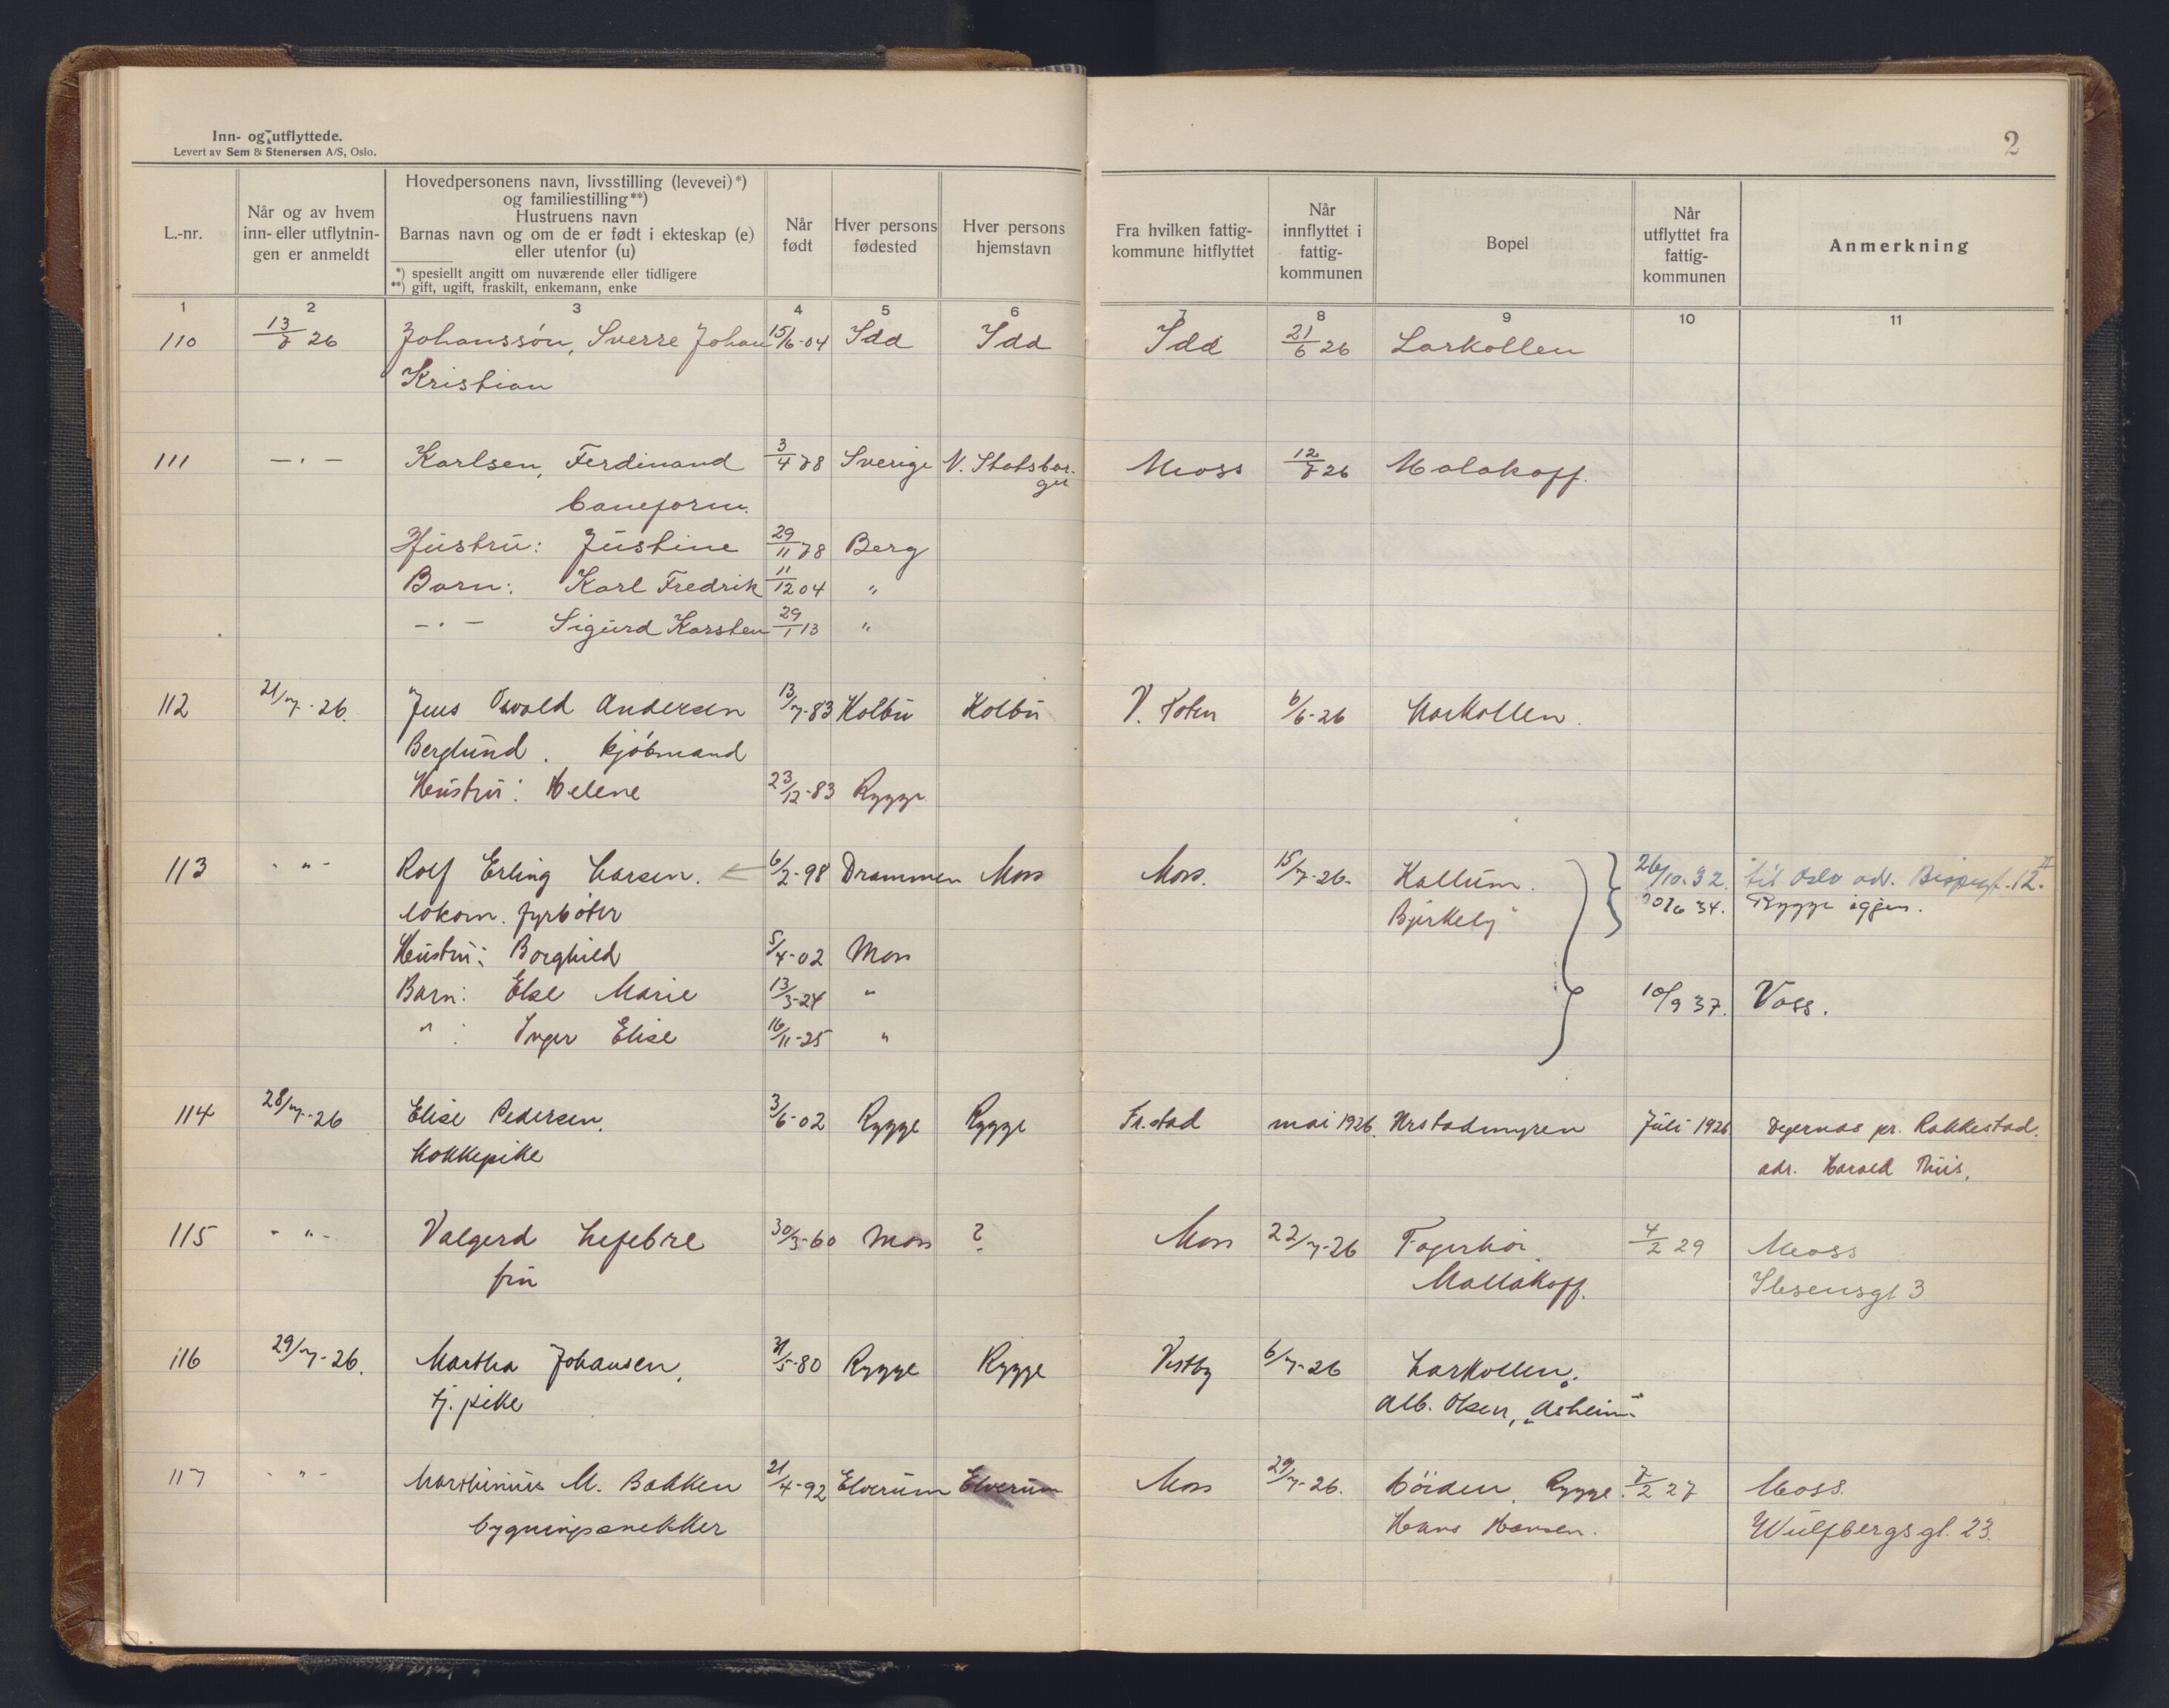 Inn- og utflyttede.
Levert av Sem & Stenersen A/S, Oslo.
2
L.-nr.
Når og av hvem
inn- eller utflytnin-
gen er anmeldt
Hovedpersonens navn, livsstilling (levevei)*)
og familiestilling**)
Hustruens navn
Barnas navn og om de er født i ekteskap (e)
eller utenfor (u)
*) spesiellt angitt om nuværende eller tidligere
**) gift, ugift, fraskilt, enkemann, enke
Når
født
Hver persons
fødested
Hver persons
hjemstavn
Fra hvilken fattig-
kommune hitflyttet
Når
innflyttet i
fattig-
kommunen
Bopel
Når
utflyttet fra
fattig-
kommunen
Anmerkning
1 2 3 4 5 6 7 8 9 10 11
110 13/7 26 Johanssøn, Sverre Johan 15/6-04 Idd Idd Idd 21/6 26 Larkollen
Kristian
111 -"- Karlsen, Ferdinand 3/4 78 Sverige N. Statsbor- Moss 12/7 26 Malakoff.
ger
baneform.
Hustru: Justine 29/11 78 Berg
Barn: Karl Fredrik 11/12 04 "
-"- Sigurd Karsten 29/1 13 "
112 21/7-26. Jens Osvald Andersen 13/7-83 Kolbu Kolbu V. Toten 6/6-26 Larkollen.
Berglund. kjøbmand
Hustru: Helene 23/12-83 Rygge
113 -"- Rolf Erling Larsen. 6/2-98 Drammen Moss Moss. 15/7-26. Kallum. 26/10-32. til Oslo adr. Bispegt. 12 II
lokom. fyrbøter Bjerkely 20/6 34. Rygge igjen.
Hustru: Borghild 5/4-02 Moss
Barn: Else Marie 13/3-24 " 10/9 37. Voss.
" : Inger Elise 16/11-25 "
114 28/7-26 Elise Pedersen, 3/6-02 Rygge Rygge Fr.stad mai 1926. Årstadmyren Juli 1926 Degernes pr. Rakkestad.
kokkepike adr. Harald Thiis.
115 -"- Valgerd Lefebre 30/3-60 Moss ? Moss 22/7-26 Fagerhøi, 4/2 29 Moss
fru Mallakoff. Ibsensgt 3
116 29/7-26. Martha Johansen, 31/5-80 Rygge Rygge Vestby 6/7-26 Larkollen.
tj. pike Alb. Olsen, "Åsheim"
117 -"- Marthinius M. Bakken 21/4-92 Elverum Elverum Moss 29/7-26. Rygge. 7/2 27 Moss.
bygningssnekker Hans Hansen. Wulfbergsgt. 23.